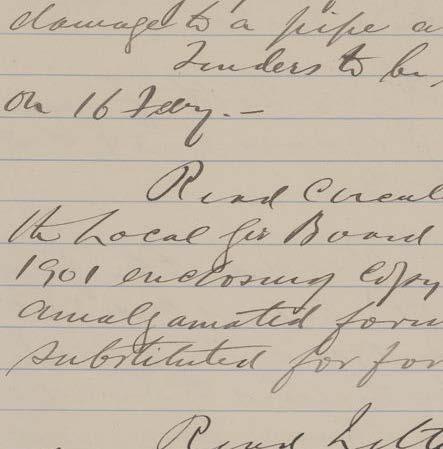 damage to a pipe a
Tenders to be
on 16 Feby. —
Read Circul
the Local Gov Board
1901 enclosing Copy
amalgamated form
substituted for for
Read Lette